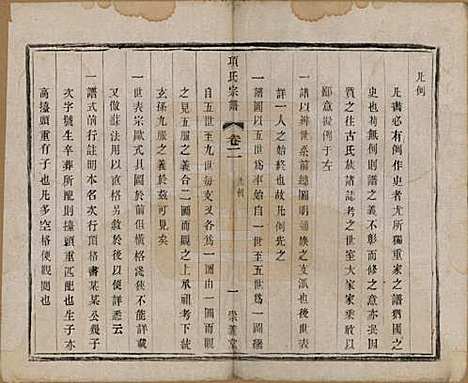 凡例
凡書必有例作史者尤所獨重家之譜猶國之
史也苟無例則譜之義不彰而修之意亦不
貫矣徃之古氏族諸誌考之世室大家乘敢以
鄙意擬例于左
一譜以辨世系前總圖明通族之支派也後世表
詳一人之始終也故凡例先之
一譜圖以五世為率始自一世至五世為一圖繼
項氏宗譜
卷二
凡例
一
崇義堂
自五世至九世每支又各為一圖蓋取上治下治
之見五服之義合二圖而觀之上承祖考下及
玄孫九服之義於茲可見矣
一世表宗歐式具圖於前但橫格淺狹不能詳載
又倣蘇法用以直格另敘於後以便詳悉云
一譜式前行諱名次行頂格書某某公幾子
次字號生卒葬所遇擡頭重匹配也生子亦
高擡頭重有子也凡多空格便觀閱也